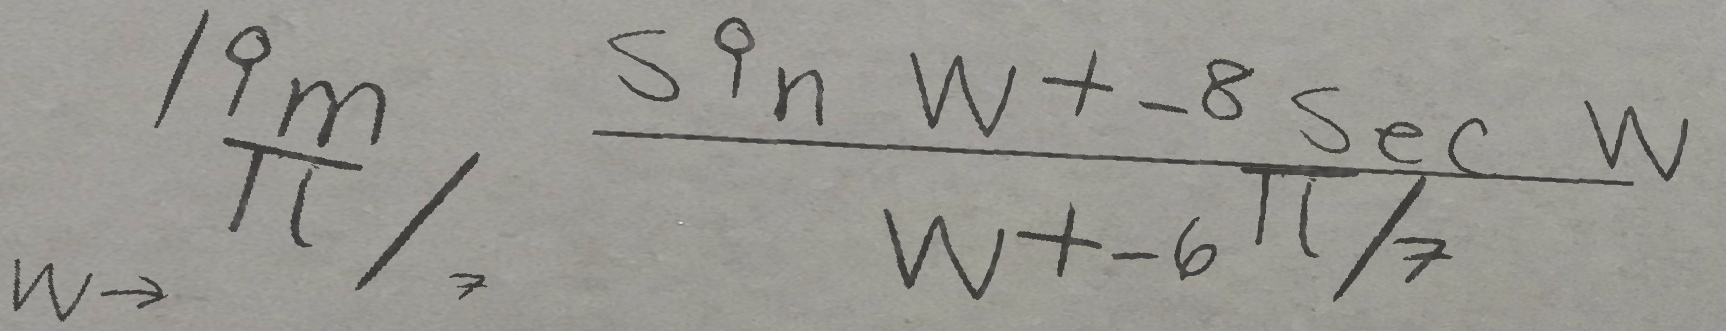 lim w→π/7 (sin w + -8 sec w)/(w + -6π/7)